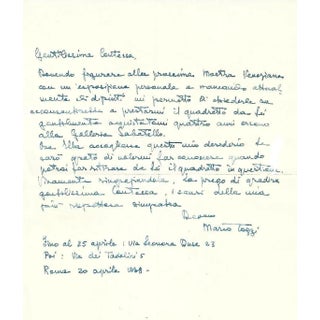 Gentilissima Contessa,
Dovendo figurare alla prossima Mostra Veneziana
con un'esposizione personale e mancando attual
mente di dipinti mi permetto di chiederle se
acconsentirebbe a prestarmi il quadretto da Lei
gentilmente acquistatomi quattro anni or sono
alla Galleria Sabatello.
Se Ella accogliesse questo mio desiderio Le
sarò grato di volermi far conoscere quando
potrei far ritirare da Lei il quadretto in questione.
Vivamente ringraziandola, La prego di gradire
gentilissima Contessa, i sensi della mia
più rispettosa simpatia
Devmo
Mario Tozzi
Fino al 25 aprile : Via Eleonora Duse 23
Poi : Via dei Tadolini 5
Roma 20 aprile